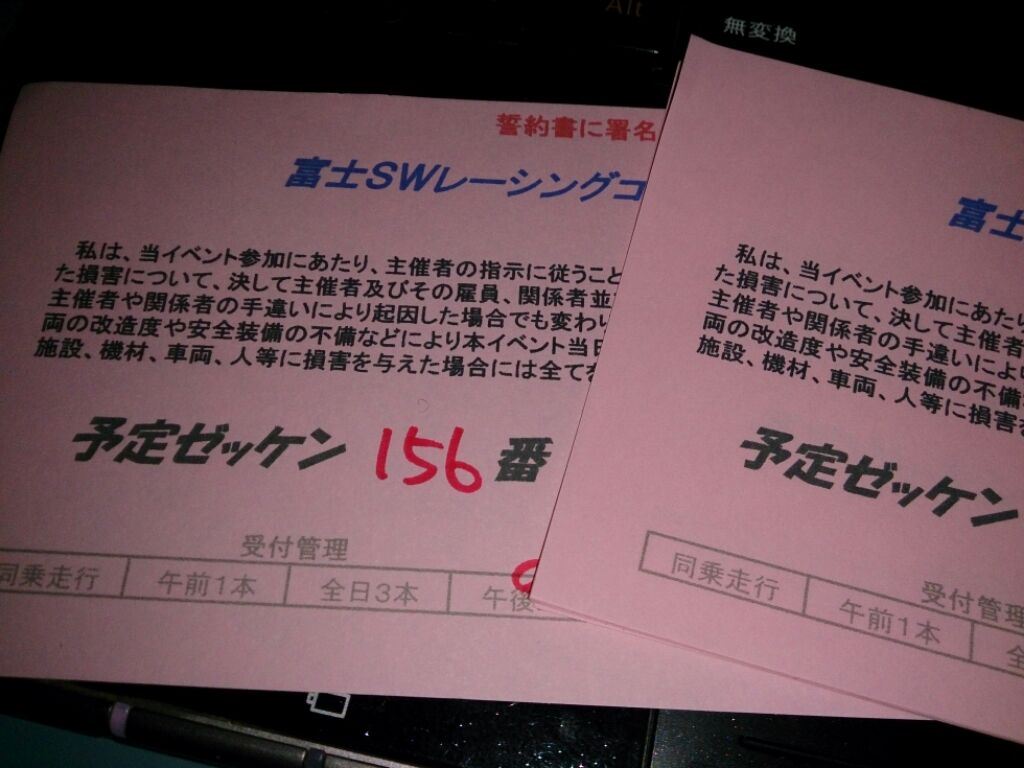 Alt
無変換
誓約書に署名
富士SWレーシングコ
私は、当イベント参加にあたり、主催者の指示に従うこと
た損害について、決して主催者及びその雇員、関係者並
主催者や関係者の手違いにより起因した場合でも変わい
両の改造度や安全装備の不備などにより本イベント当日
施設、機材、車両、人等に損害を与えた場合には全てを
予定ゼッケン 156 番
受付管理
同乗走行 午前1本 全日3本 午後
富士
私は、当イベント参加にあた
た損害について、決して主催者
主催者や関係者の手違いによ
両の改造度や安全装備の不備
施設、機材、車両、人等に損害
予定ゼッケン
受付管理
同乗走行 午前1本 全